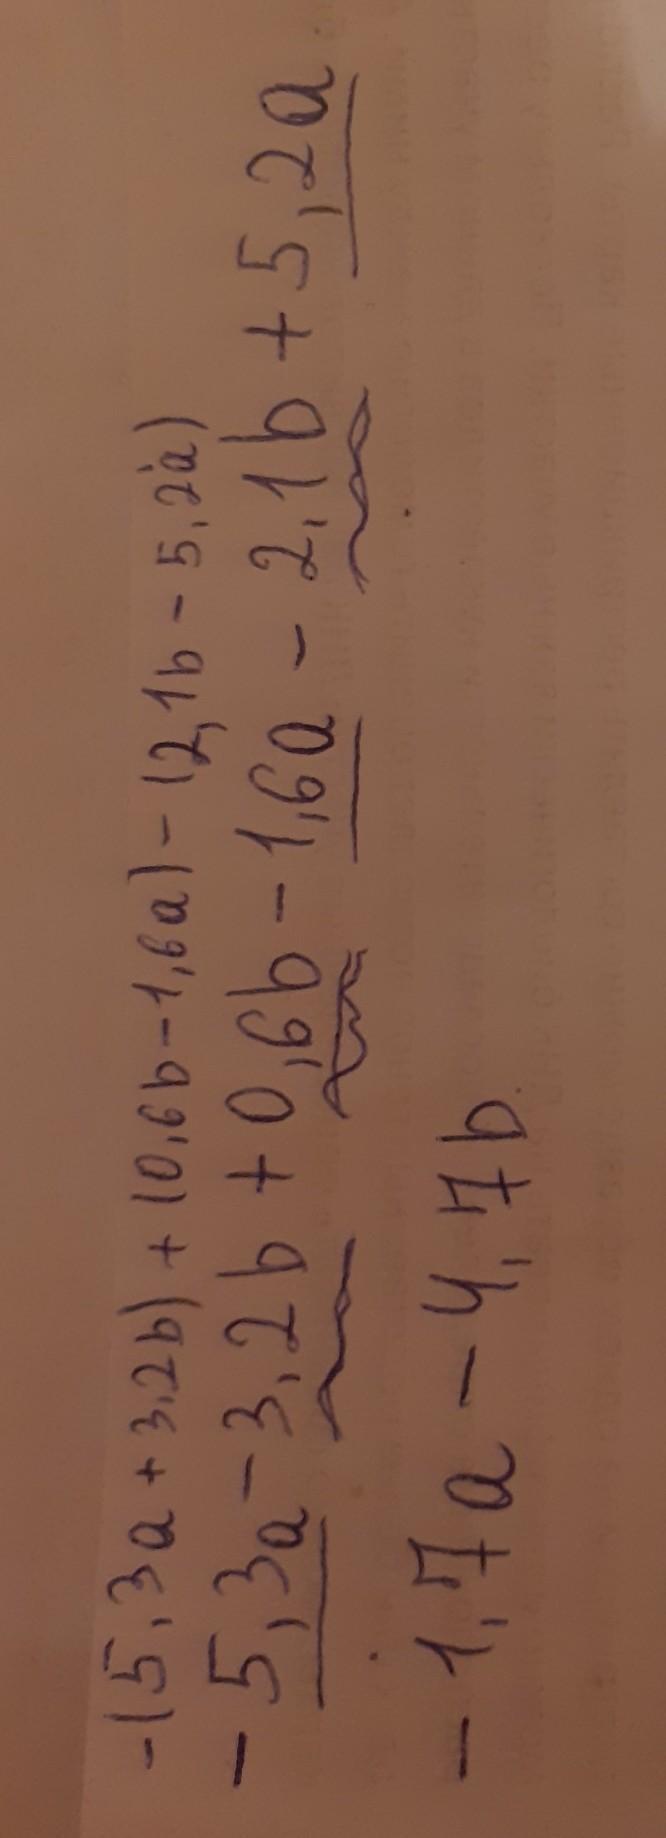 -(5,3a+3,2b)+(0,6b-1,6a)-(2,1b-5,2a)
-5,3a-3,2b+0,6b-1,6a-2,1b+5,2a
-1,7a-4,7b